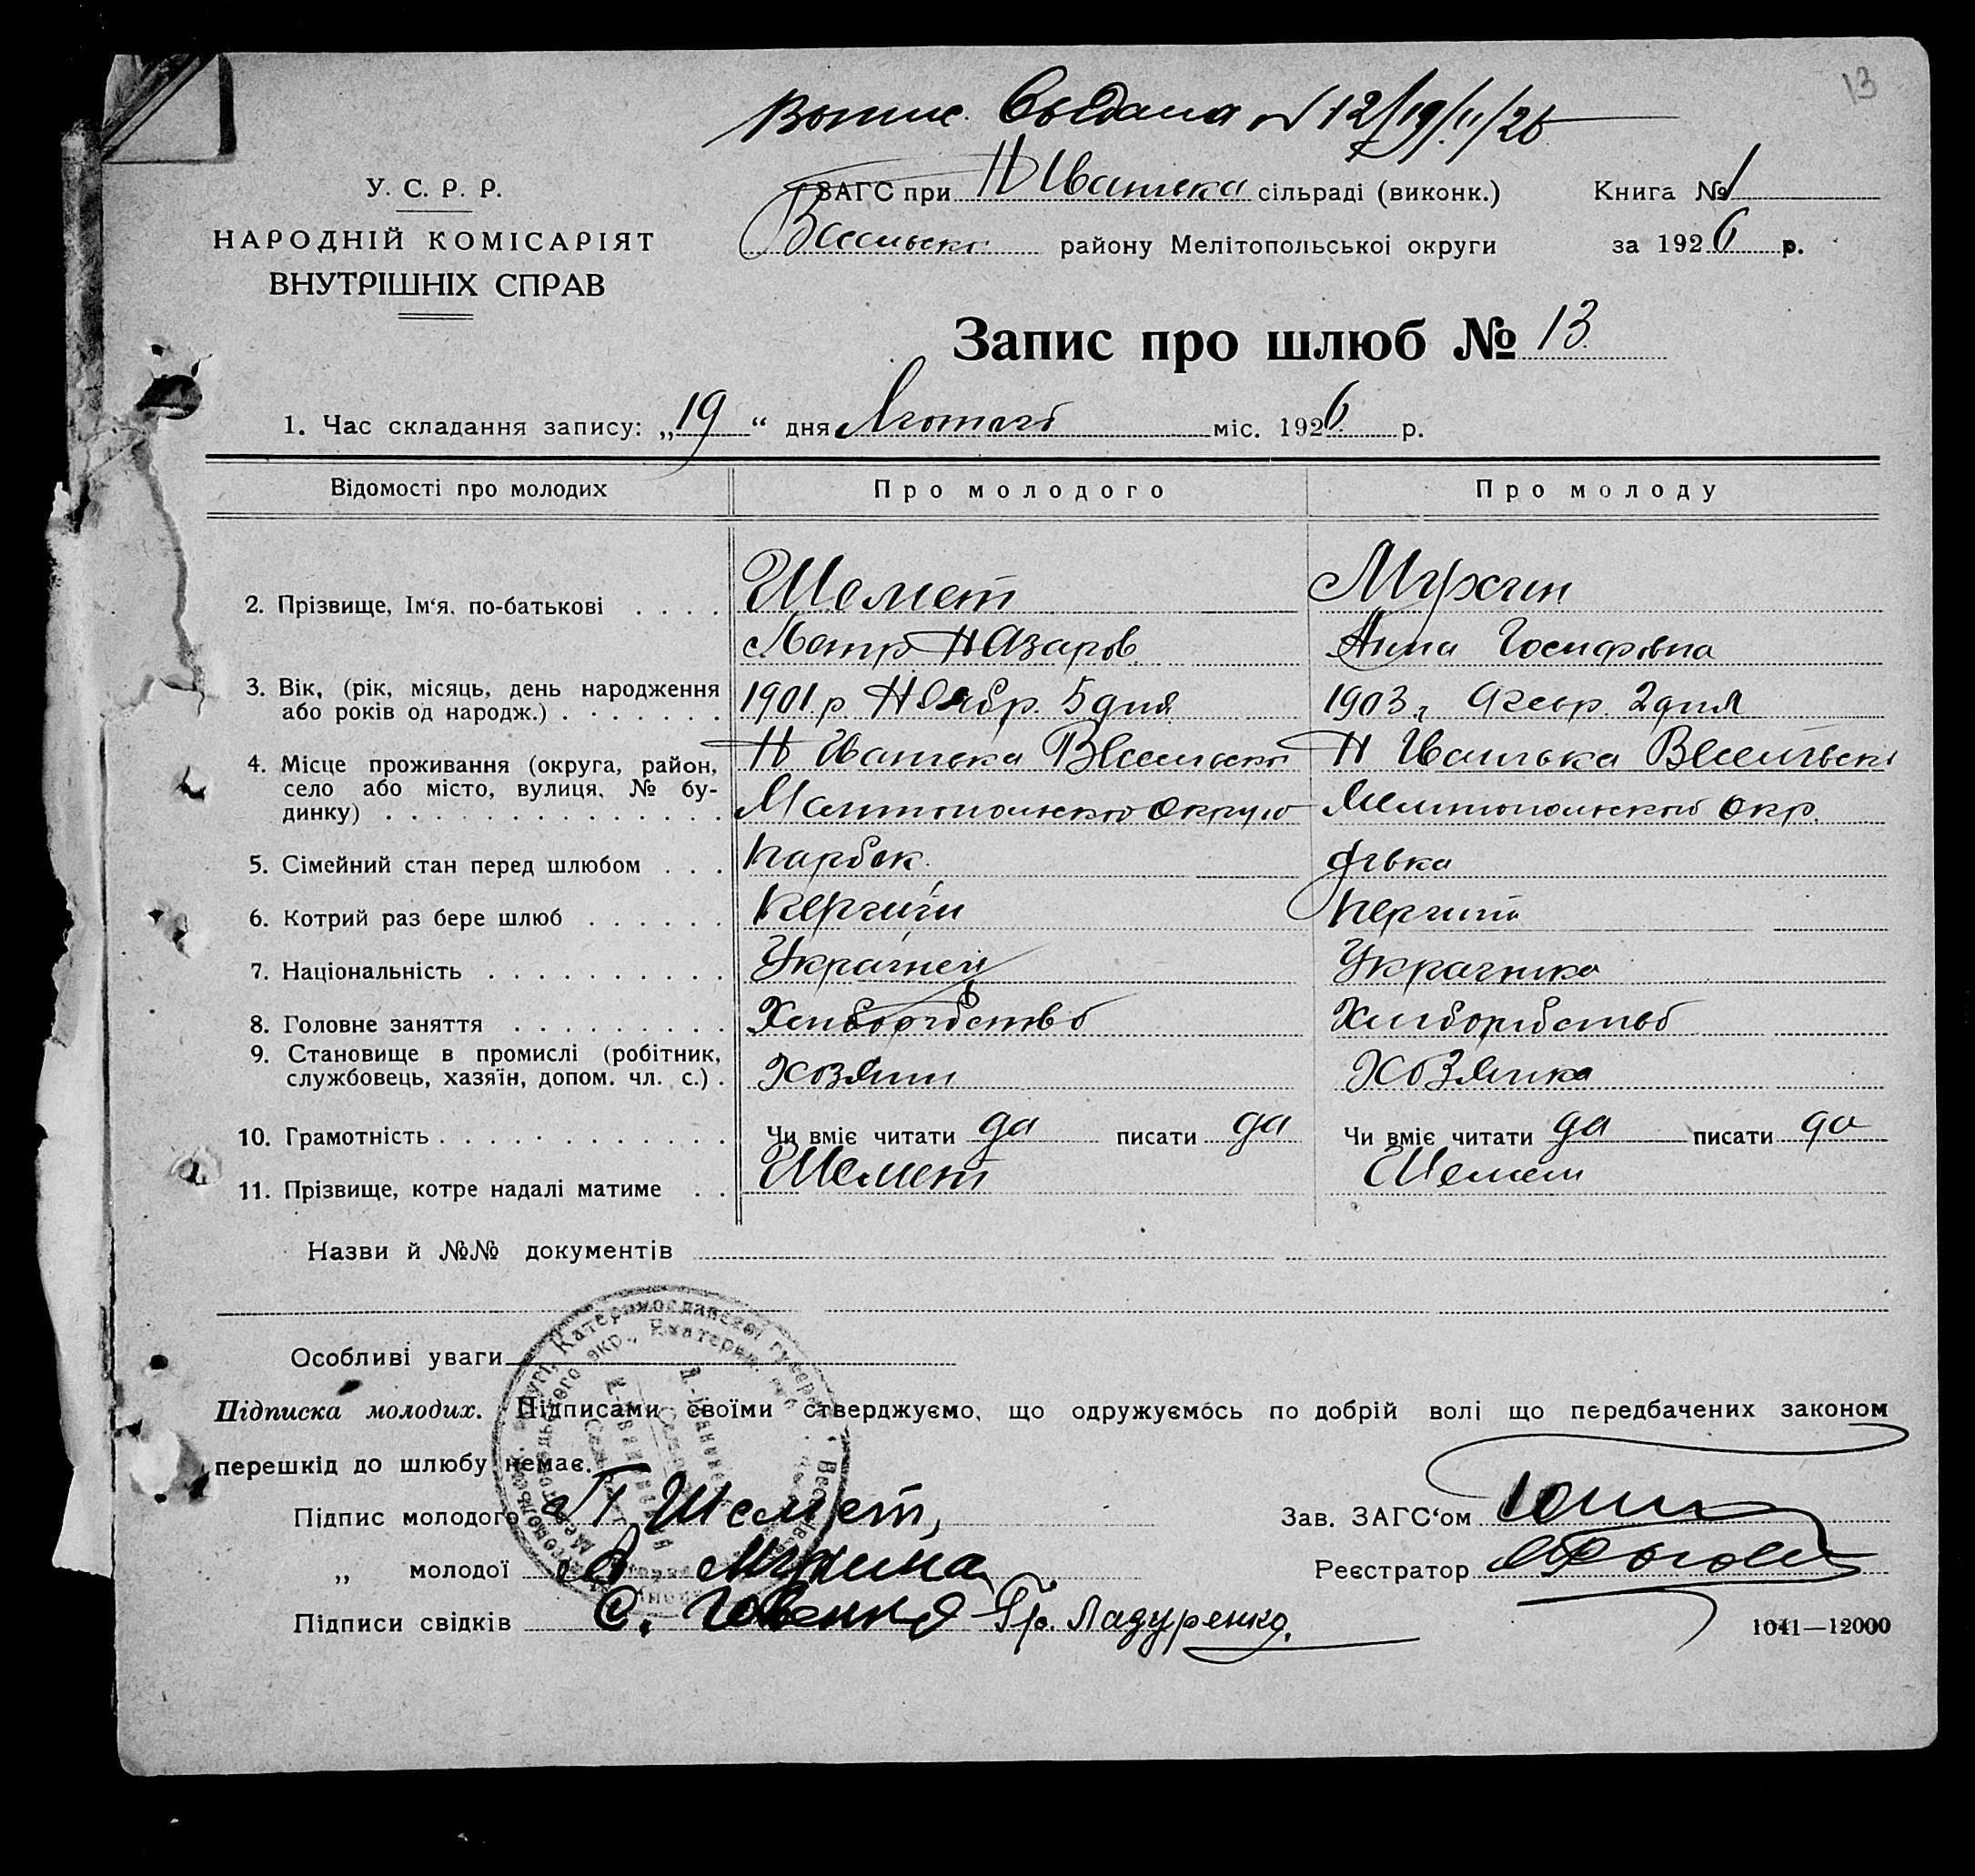 13
Выпис. Выдана № 12/19/II/26
У. С. Р. Р.
НАРОДНІЙ КОМІСАРІЯТ
ВНУТРІШНІХ СПРАВ
ЗАГС при Н Іванівка сільраді (виконк.) Книга № 1
Весельськ району Мелітопольської округи за 1926 р.
Запис про шлюб № 13
1. Час складання запису: „19“ дня Лютого міс. 1926 р.
Відомості про молодих Про молодого Про молоду
2. Прізвище, Ім‘я, по-батькові Шемет Мухин
Петр Назаров Анна Госифовна
3. Вік, (рік, місяць, день народження
або років од народж.) 1901 р Ноябр. 5 дня 1903 2 дня
4. Місце проживання (округа, район,
село або місто, вулиця, № бу-
динку)
Н Весельск Н Весельск
округи окр.
5. Сімейний стан перед шлюбом парубок дівка
6. Котрий раз бере шлюб первий первий
7. Національність Украінец Украінка
8. Головне заняття Хліборобство Хліборобство
9. Становище в промислі (робітник,
службовець, хазяїн, допом. чл. с.) Хозяин Хозяйка
10. Грамотність Чи вміє читати да писати да Чи вміє читати да писати да
11. Прізвище, котре надалі матиме Шемет Шемет
Назви й №№ документів
Особливі уваги
Підписка молодих. Підписами своїми стверджуємо, що одружуємось по добрій волі що передбачених законом
перешкід до шлюбу немає.
Підпис молодого П Шемет, Зав. ЗАГС‘ом
„ молодої А Мухина Реєстратор
Підписи свідків С. Гр. Лазуренко.
1041—12000